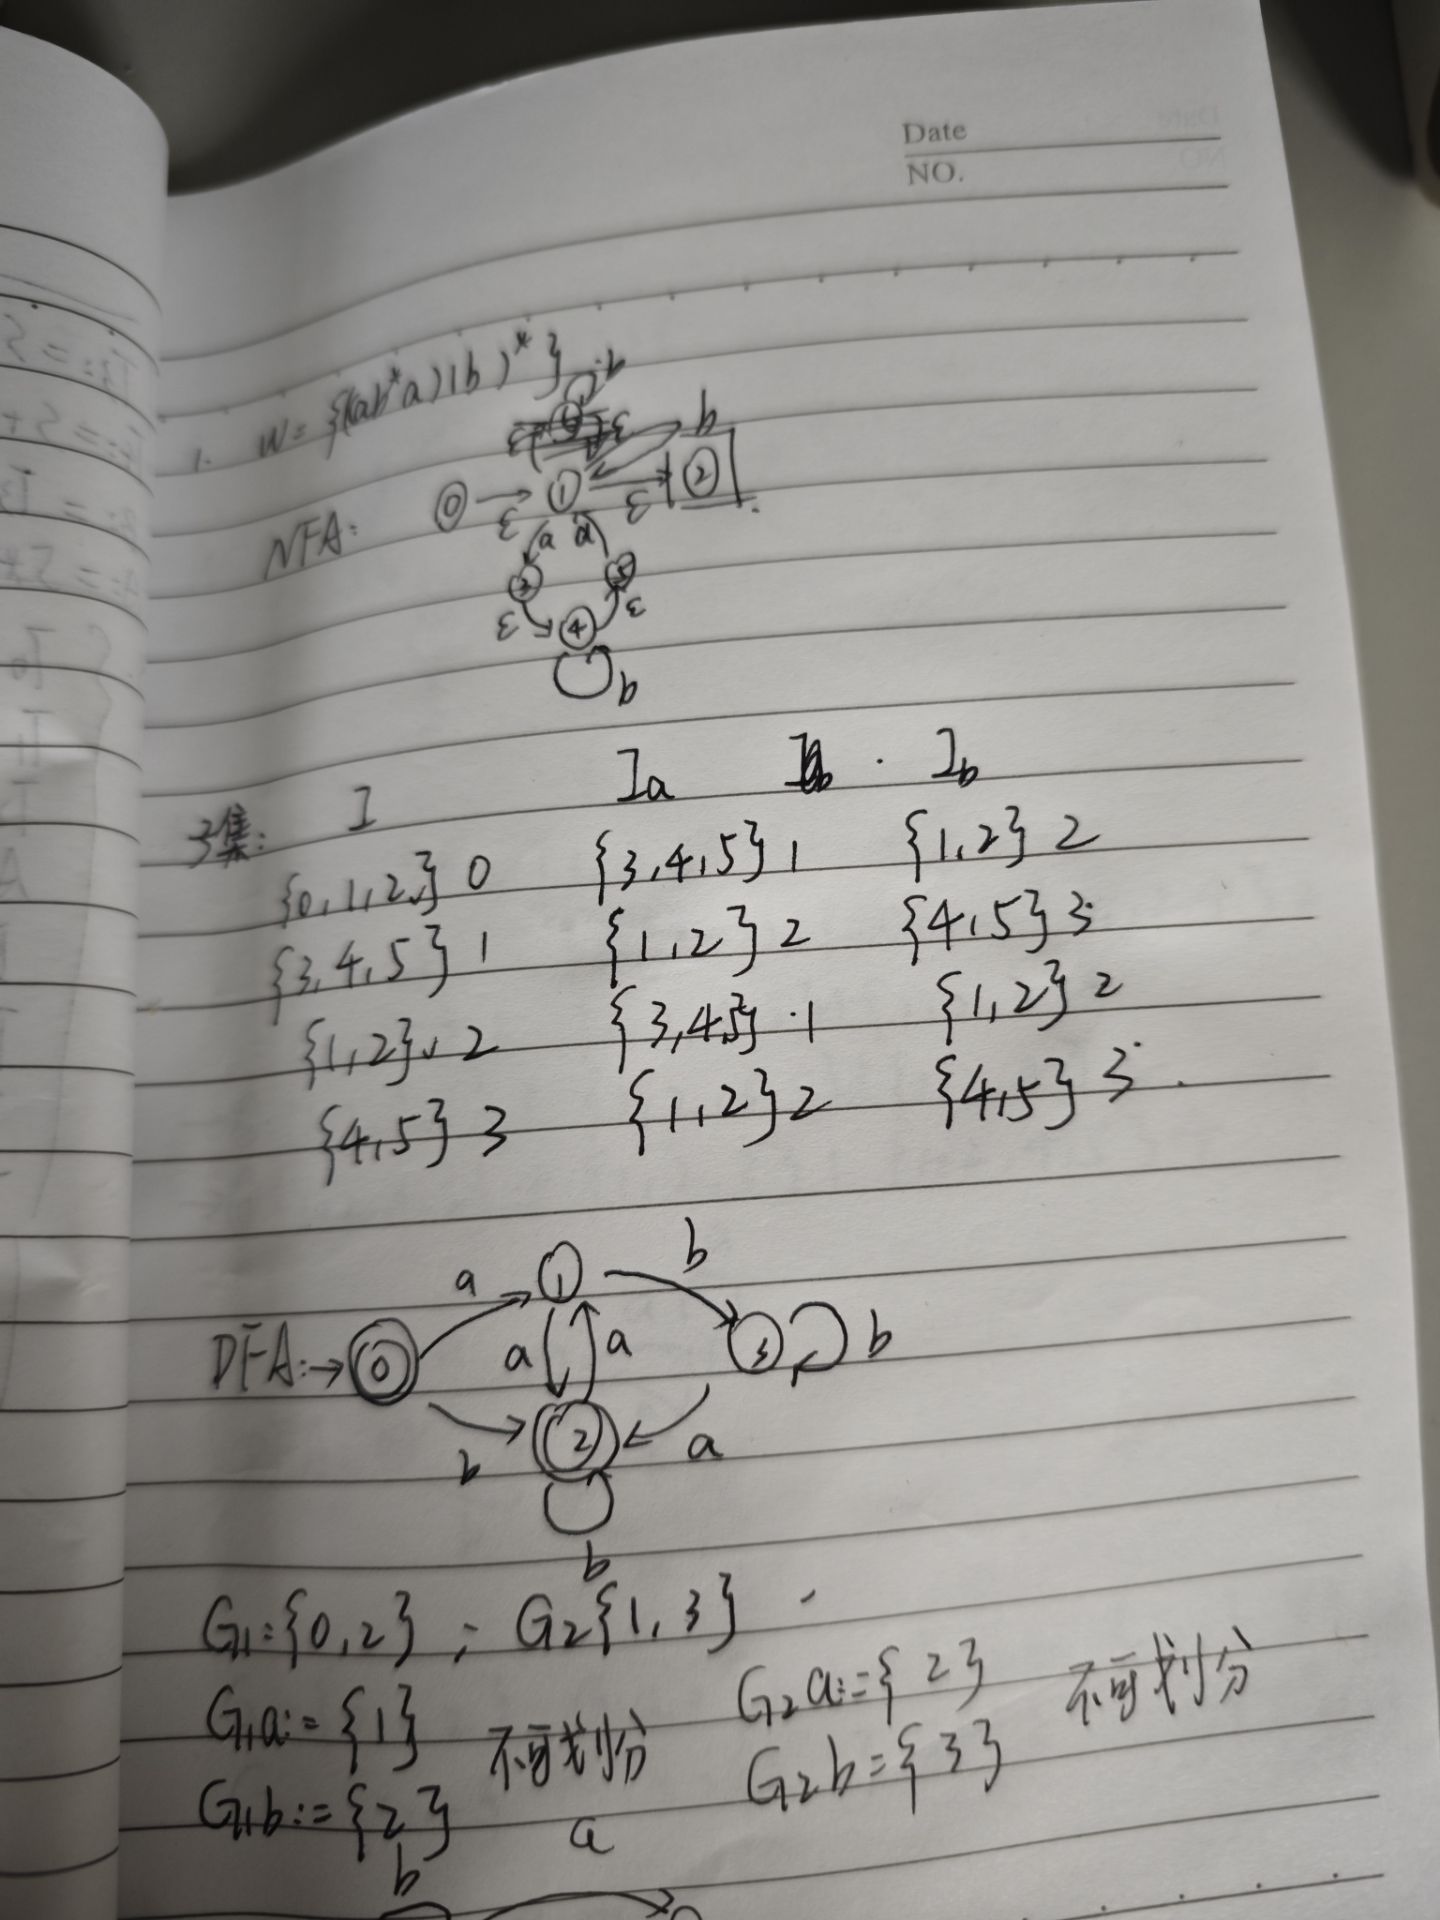 Date
NO.
1. W = {(ab*a)|b)*}
b
ε ε b
NFA: 0 ε 1 ε 2
a a
3 5
ε 4 ε
b
子集: I Ia Ib
{0,1,2,} 0 {3,4,5} 1 {1,2} 2
{3,4,5} 1 {1,2} 2 {4,5} 3
{1,2} 2 {3,4,5} 1 {1,2} 2
{4,5} 3 {1,2} 2 {4,5} 3
a 1 b
DFA: → 0 a a 3 b
b 2 a
b
G1:={0,2} ; G2{1,3}
G1a:={1} 不可划分 G2a:={2} 不可划分
G1b:={2} G2b={3}
b a